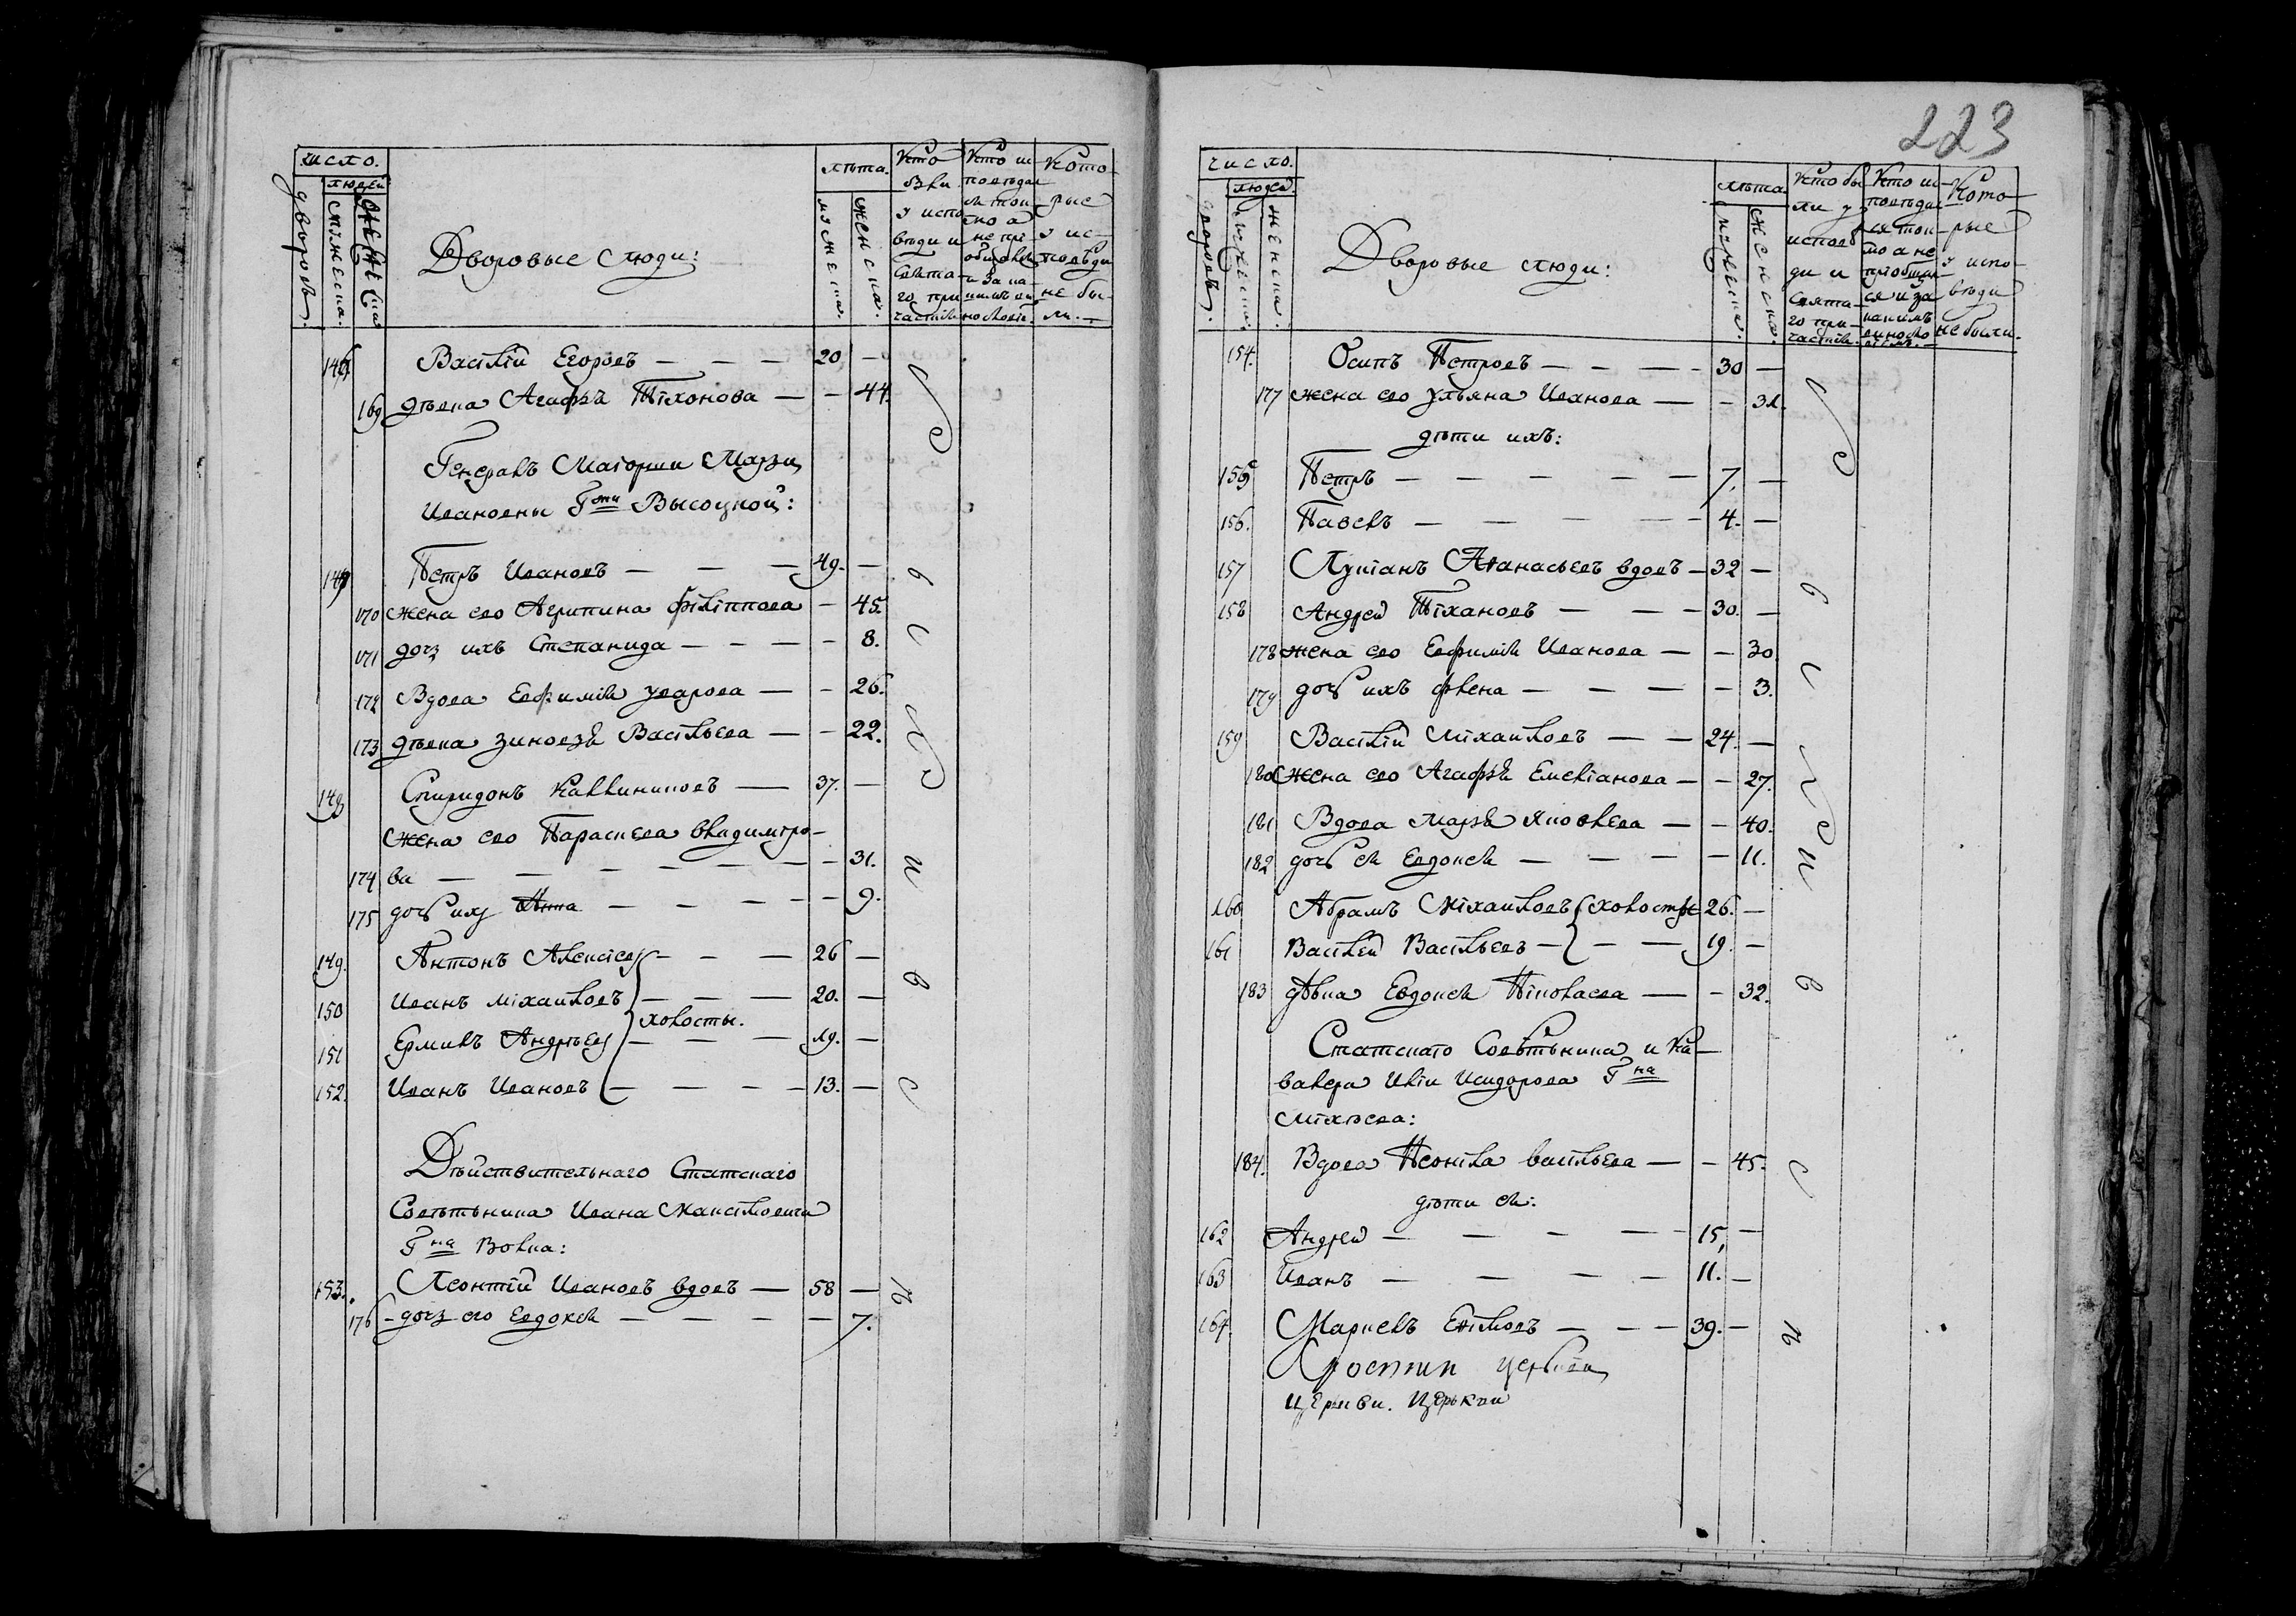 число.
людей
дворовъ.
мужеска.
женска
Дворовые люди:
лѣта.
мужеска.
женска.
Кто были у исповѣди и святаго причастія
Кто исповѣдался токмо а не пріобщался и за какимъ винословіемъ.
Которые у исповѣди не были.
146 Василій Егоровъ — — — 20 —
169 дѣвка Агафья Тіхонова — — 44.
Генералъ Маіорши Марьи
Ивановны Гжи Высоцкой:
147 Петръ Ивановъ — — — 49. —
170 жена его Агрипина Філіппова — 45.
171 дочь ихъ Степанида — — — — 8.
172 Вдова Евфимія Уварова — — 26.
173 дѣвка Зиновья Васільева — — 22.
148 Спиридонъ Каллиниковъ — 37. —
жена его Параскева Владимiро-
174 ва — — — — — — — 31.
175 дочь ихъ Анна — — — — — 9.
149. Антонъ Алексіевъ — — — 26 —
150 Иванъ Міхайловъ — — — 20. —
холосты.
151 Ермилъ Андрѣевъ — — — 19. —
152. Иванъ Ивановъ — — — — 13. —
Дѣйствительнаго Статскаго
Совѣтьника Ивана Максімовича
Гна Волка:
153. Леонтій Ивановъ вдовъ — 58 —
176 дочь его Евдокія — — — — 7.
всѣ
были
в
с
223
число.
людей.
дворовъ.
мужеска.
женска.
Дворовые люди:
лѣта.
мужеска.
женска.
Кто были у исповѣди и святаго причастія.
Кто исповѣдался токмо а не пріобщался и за какимъ винословіемъ.
Которые у исповѣди не были.
154. Осипъ Петровъ — — — — 30 —
177 жена его Ульяна Иванова — — 31.
дѣти ихъ:
155 Петръ — — — — — 7. —
156. Павелъ — — — — — 4. —
157 Лукіанъ Аѳанасьевъ вдовъ — 32 —
158 Андрей Тіхановъ — — — 30. —
178 жена его Евфимія Иванова — — 30
179 дочь ихъ Фіена — — — — 3.
159 Василій Міхайловъ — — 24. —
180 жена его Агафья Емеліанова — — 27.
181 Вдова Марья Яковлева — — 40.
182 дочь ея Евдокея — — — — 11.
160 Абрамъ Міхайловъ холосты 26. —
161 Василей Васильевъ — — — 19. —
183 дѣвка Евдокея Ніколаева — — 32.
Статскаго Совѣтьника и Ка-
валера Иліи Исидорова Гна
Міхѣева:
184. Вдова Неоніла Васильева — — 45.
дѣти ея:
162 Андрей — — — — 15, —
163 Иванъ — — — — 11. —
164. Маркелъ Еѳімовъ — — — 39. —
церкви. Церькви